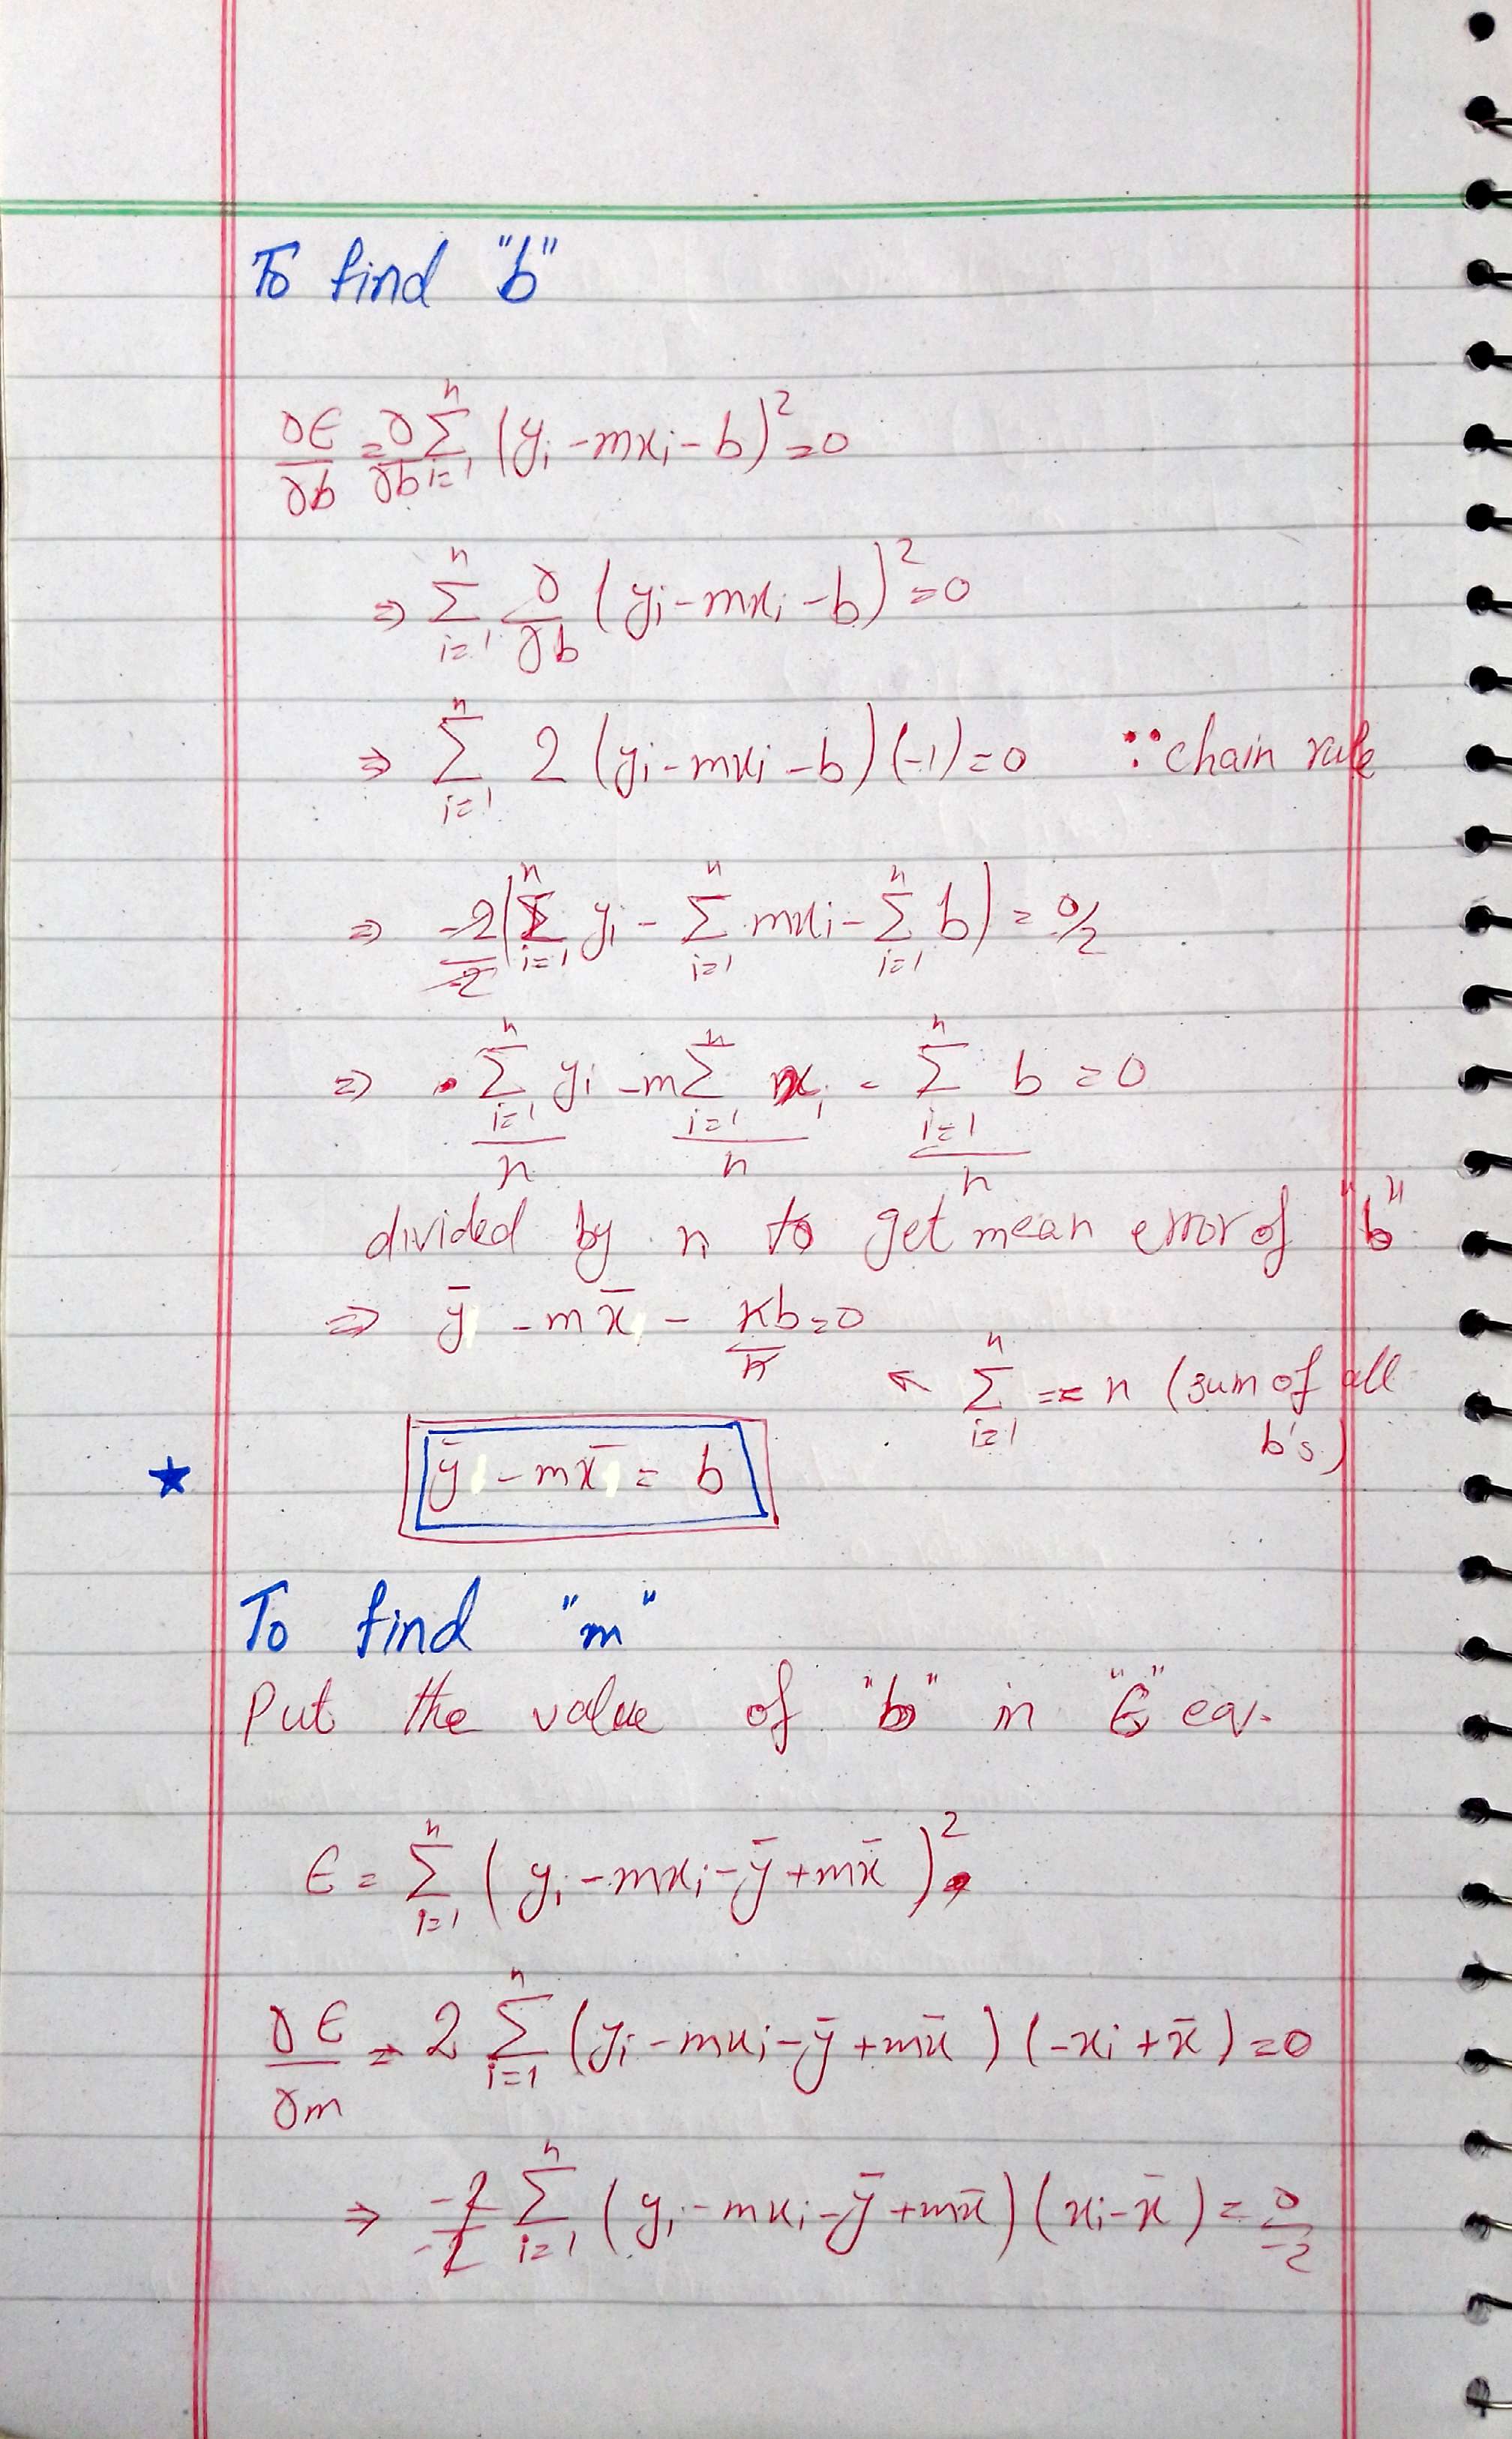 To find "b"
∂E/∂b = ∂/∂b Σ_{i=1}^{n} (y_i - mx_i - b)² = 0
⇒ Σ_{i=1}^{n} ∂/∂b (y_i - mx_i - b)² = 0
⇒ Σ_{i=1}^{n} 2 (y_i - mx_i - b)(-1) = 0 ∵ chain rule
⇒ -2/-2 (Σ_{i=1}^{n} y_i - Σ_{i=1}^{n} mx_i - Σ_{i=1}^{n} b) = 0/2
⇒ Σ_{i=1}^{n} y_i / n - m Σ_{i=1}^{n} x_i / n - Σ_{i=1}^{n} b / n = 0
divided by n to get mean error of "b"
⇒ ȳ - mx̄ - nb/n = 0
← Σ_{i=1}^{n} == n (sum of all
b's)
★ ȳ - mx̄ = b
To find "m"
Put the value of "b" in "E" eq.
E = Σ_{i=1}^{n} (y_i - mx_i - ȳ + mx̄)²
∂E/∂m = 2 Σ_{i=1}^{n} (y_i - mx_i - ȳ + mx̄)(-x_i + x̄) = 0
⇒ -2/-2 Σ_{i=1}^{n} (y_i - mx_i - ȳ + mx̄)(x_i - x̄) = 0/-2